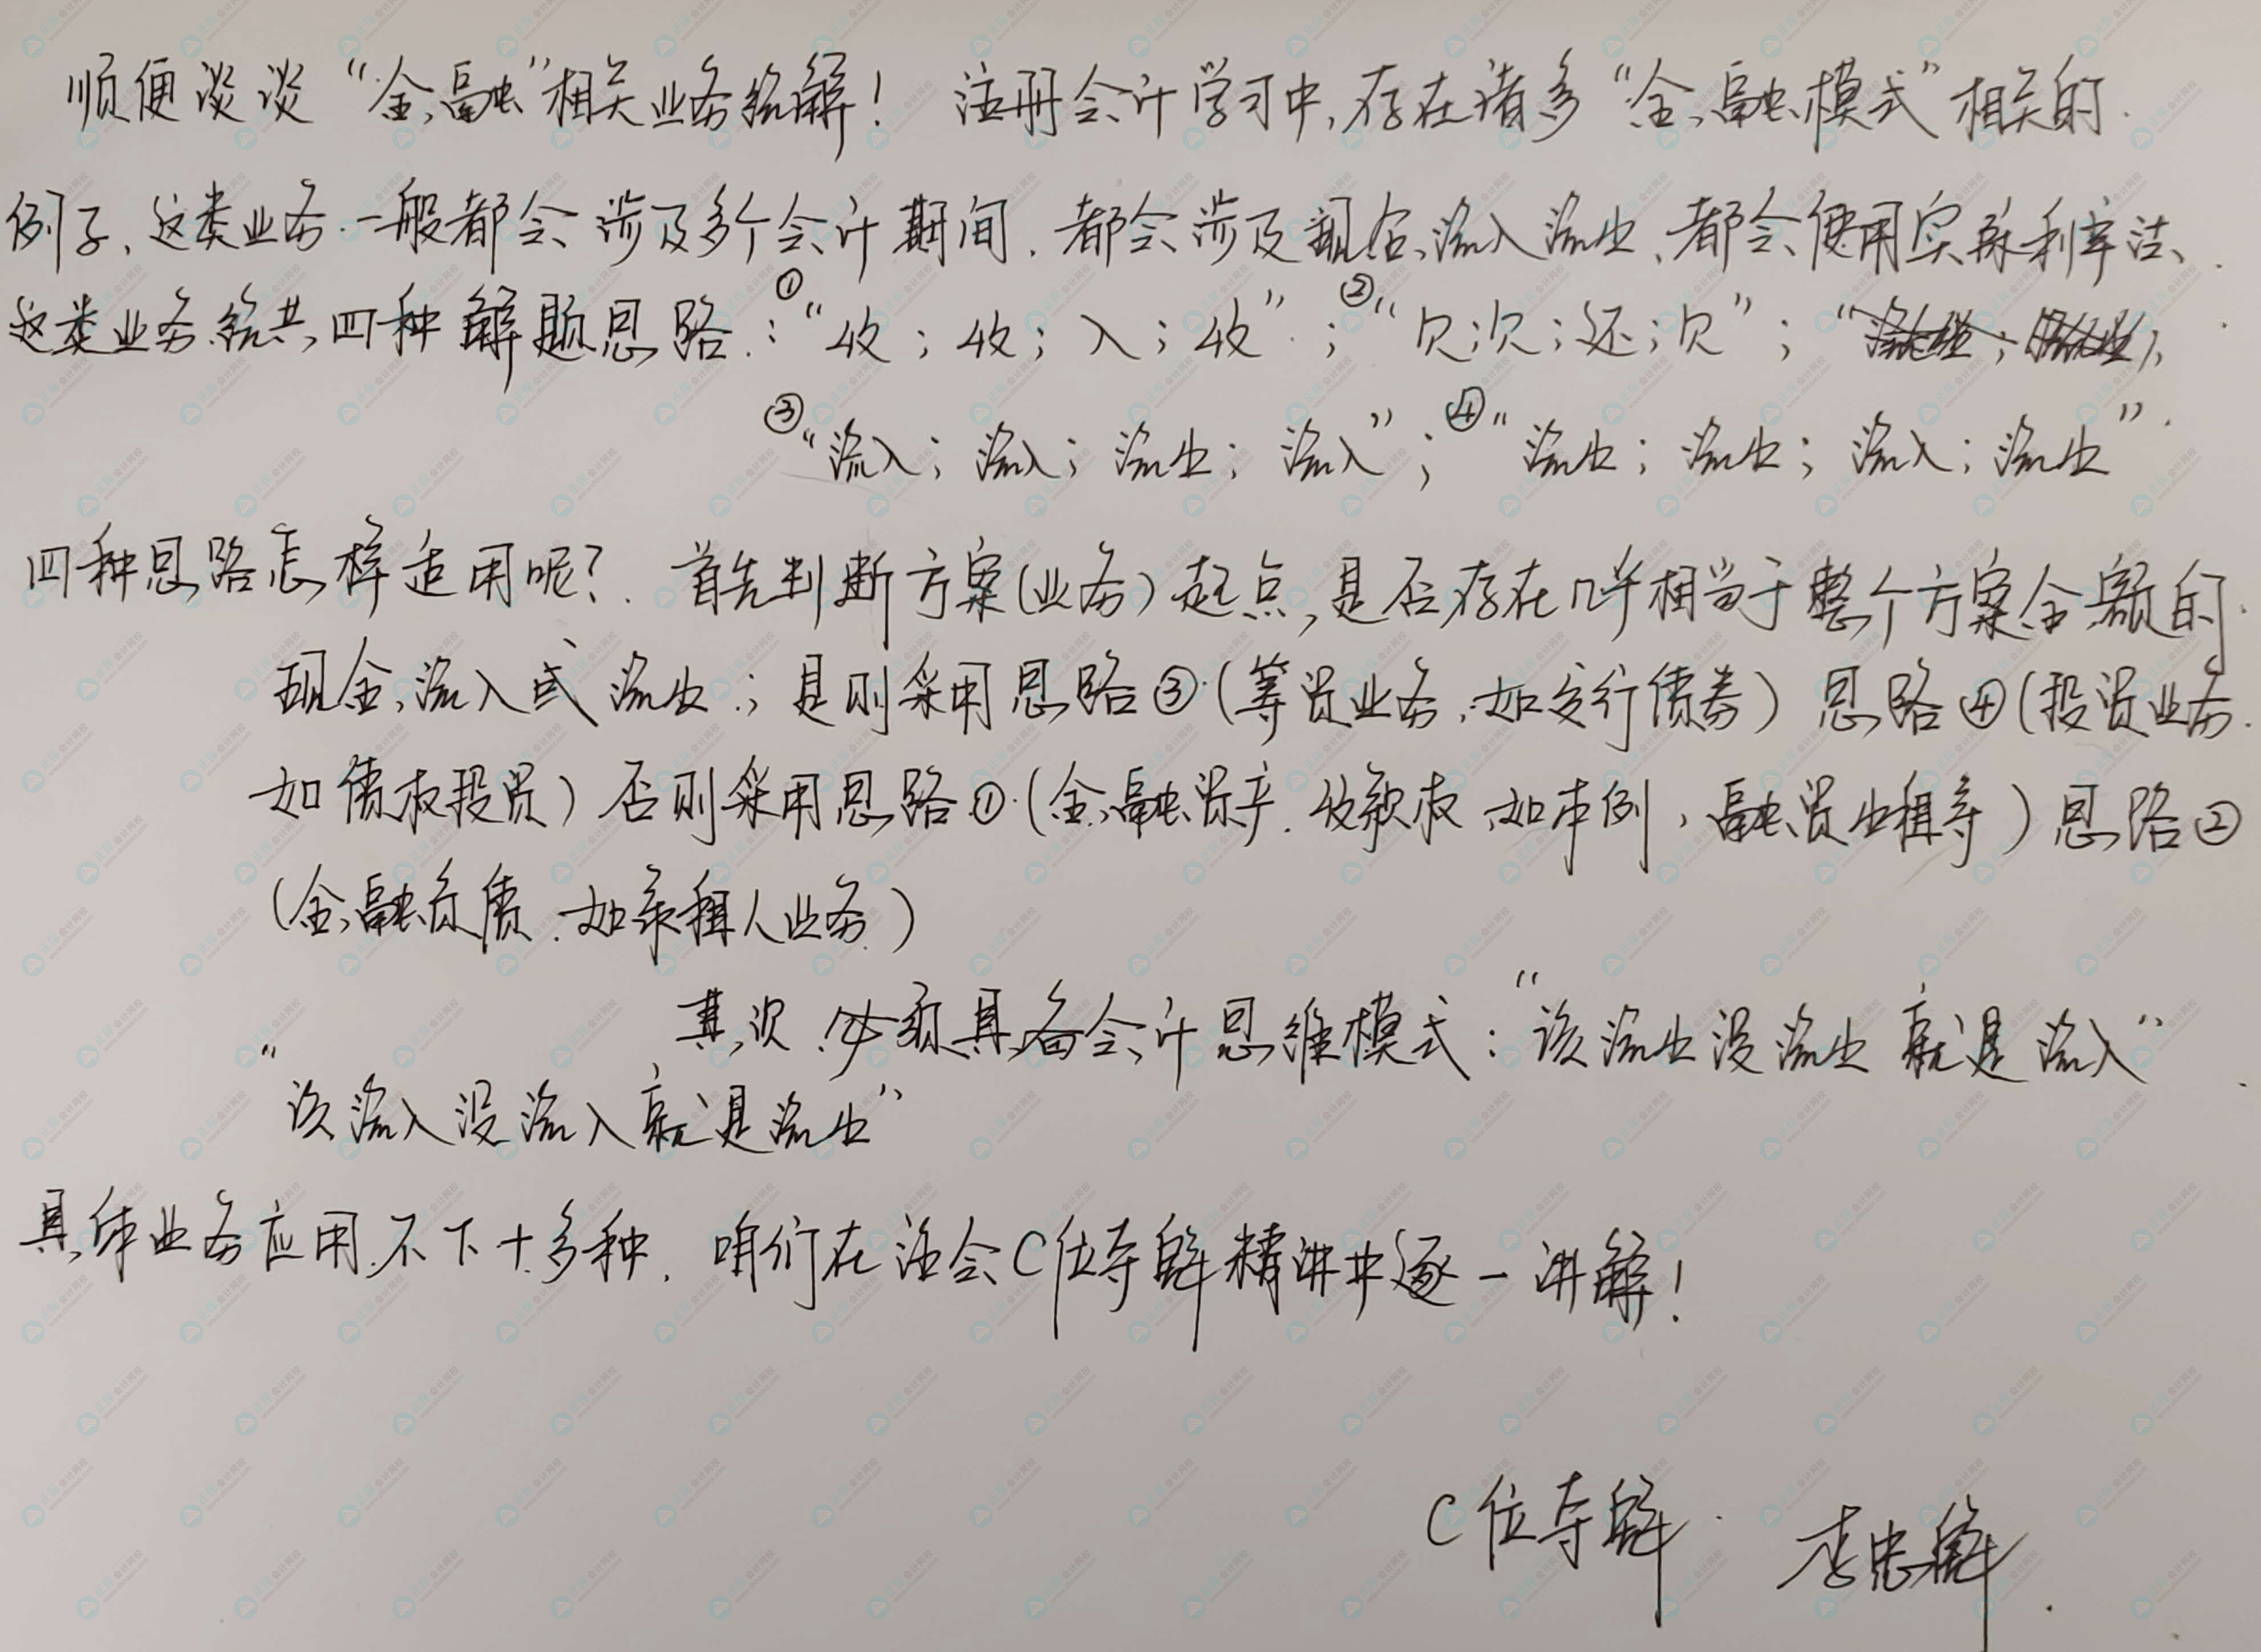 顺便谈谈“金融”相关业务统解！ 注册会计学习中，存在诸多“金融模式”相关的
例子，这类业务一般都会涉及多个会计期间，都会涉及现金流入流出，都会使用实际利率法、
这类业务统共四种解题思路：①“收；收；入；收”；②“欠；欠；还；欠”；“
③“流入；流入；流出；流入”；④“流出；流出；流入；流出”
四种思路怎样适用呢？首先判断方案(业务)起点，是否存在几乎相当于整个方案金额的
现金流入或流出；是则采用思路③(筹资业务，如发行债券) 思路④(投资业务
如债权投资) 否则采用思路①(金融资产，收款权，如本例，融资出租等) 思路②
(金融负债，如承租人业务)
其次 必须具备会计思维模式：“该流出没流出就是流入”
“该流入没流入就是流出”
具体业务应用不下十多种，咱们在注会C位夺魁精讲中逐一讲解！
C位夺魁 李忠魁
正保会计网校